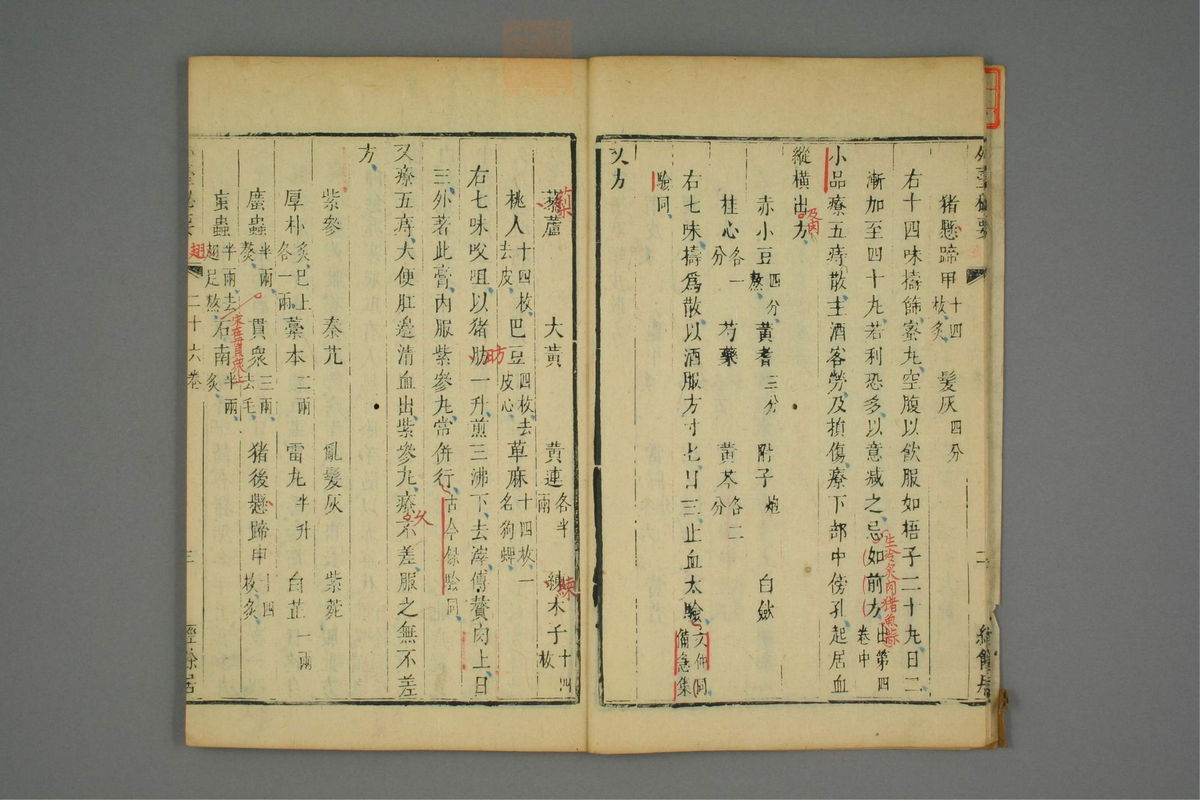 猪懸蹄甲十四枚炙 髮灰四分
右十四味擣篩蜜丸空腹以飲服如梧子二十丸日二
漸加至四十丸若利恐多以意減之忌如前方出第四卷中
生冷炙肉猪魚蒜
小品療五痔散主酒客勞及損傷療下部中傍孔起居血
縱橫出方
及肉
赤小豆四分熬 黃耆三分 附子炮 白蘞
桂心各一分 芍藥 黃芩各二分
右七味擣為散以酒服方寸匕日三止血太驗文仲同備急集
驗同
又方
藜蘆 大黃 黃連各半兩 練木子十四枚
藜
楝
桃人十四枚去皮 巴豆四枚去皮心 萆麻十四枚一名狗蜱
右七味㕮咀以猪肪一升煎三沸下去滓傅贅肉上日
肪
三外著此膏內服紫參丸常併行古今録驗同
又療五痔大便肛邊清血出紫參丸療不差服之無不差
久
方
紫參 秦艽 亂髮灰 紫菀
厚朴炙巴上各一兩 藁本二兩 雷丸半升 白芷一兩
䗪蟲半兩熬 貫衆三兩去毛 猪後懸蹄甲十四枚炙
虻蟲半兩去翅足熬 石南半兩炙
翅
外臺秘要 二十六卷 三 經餘居